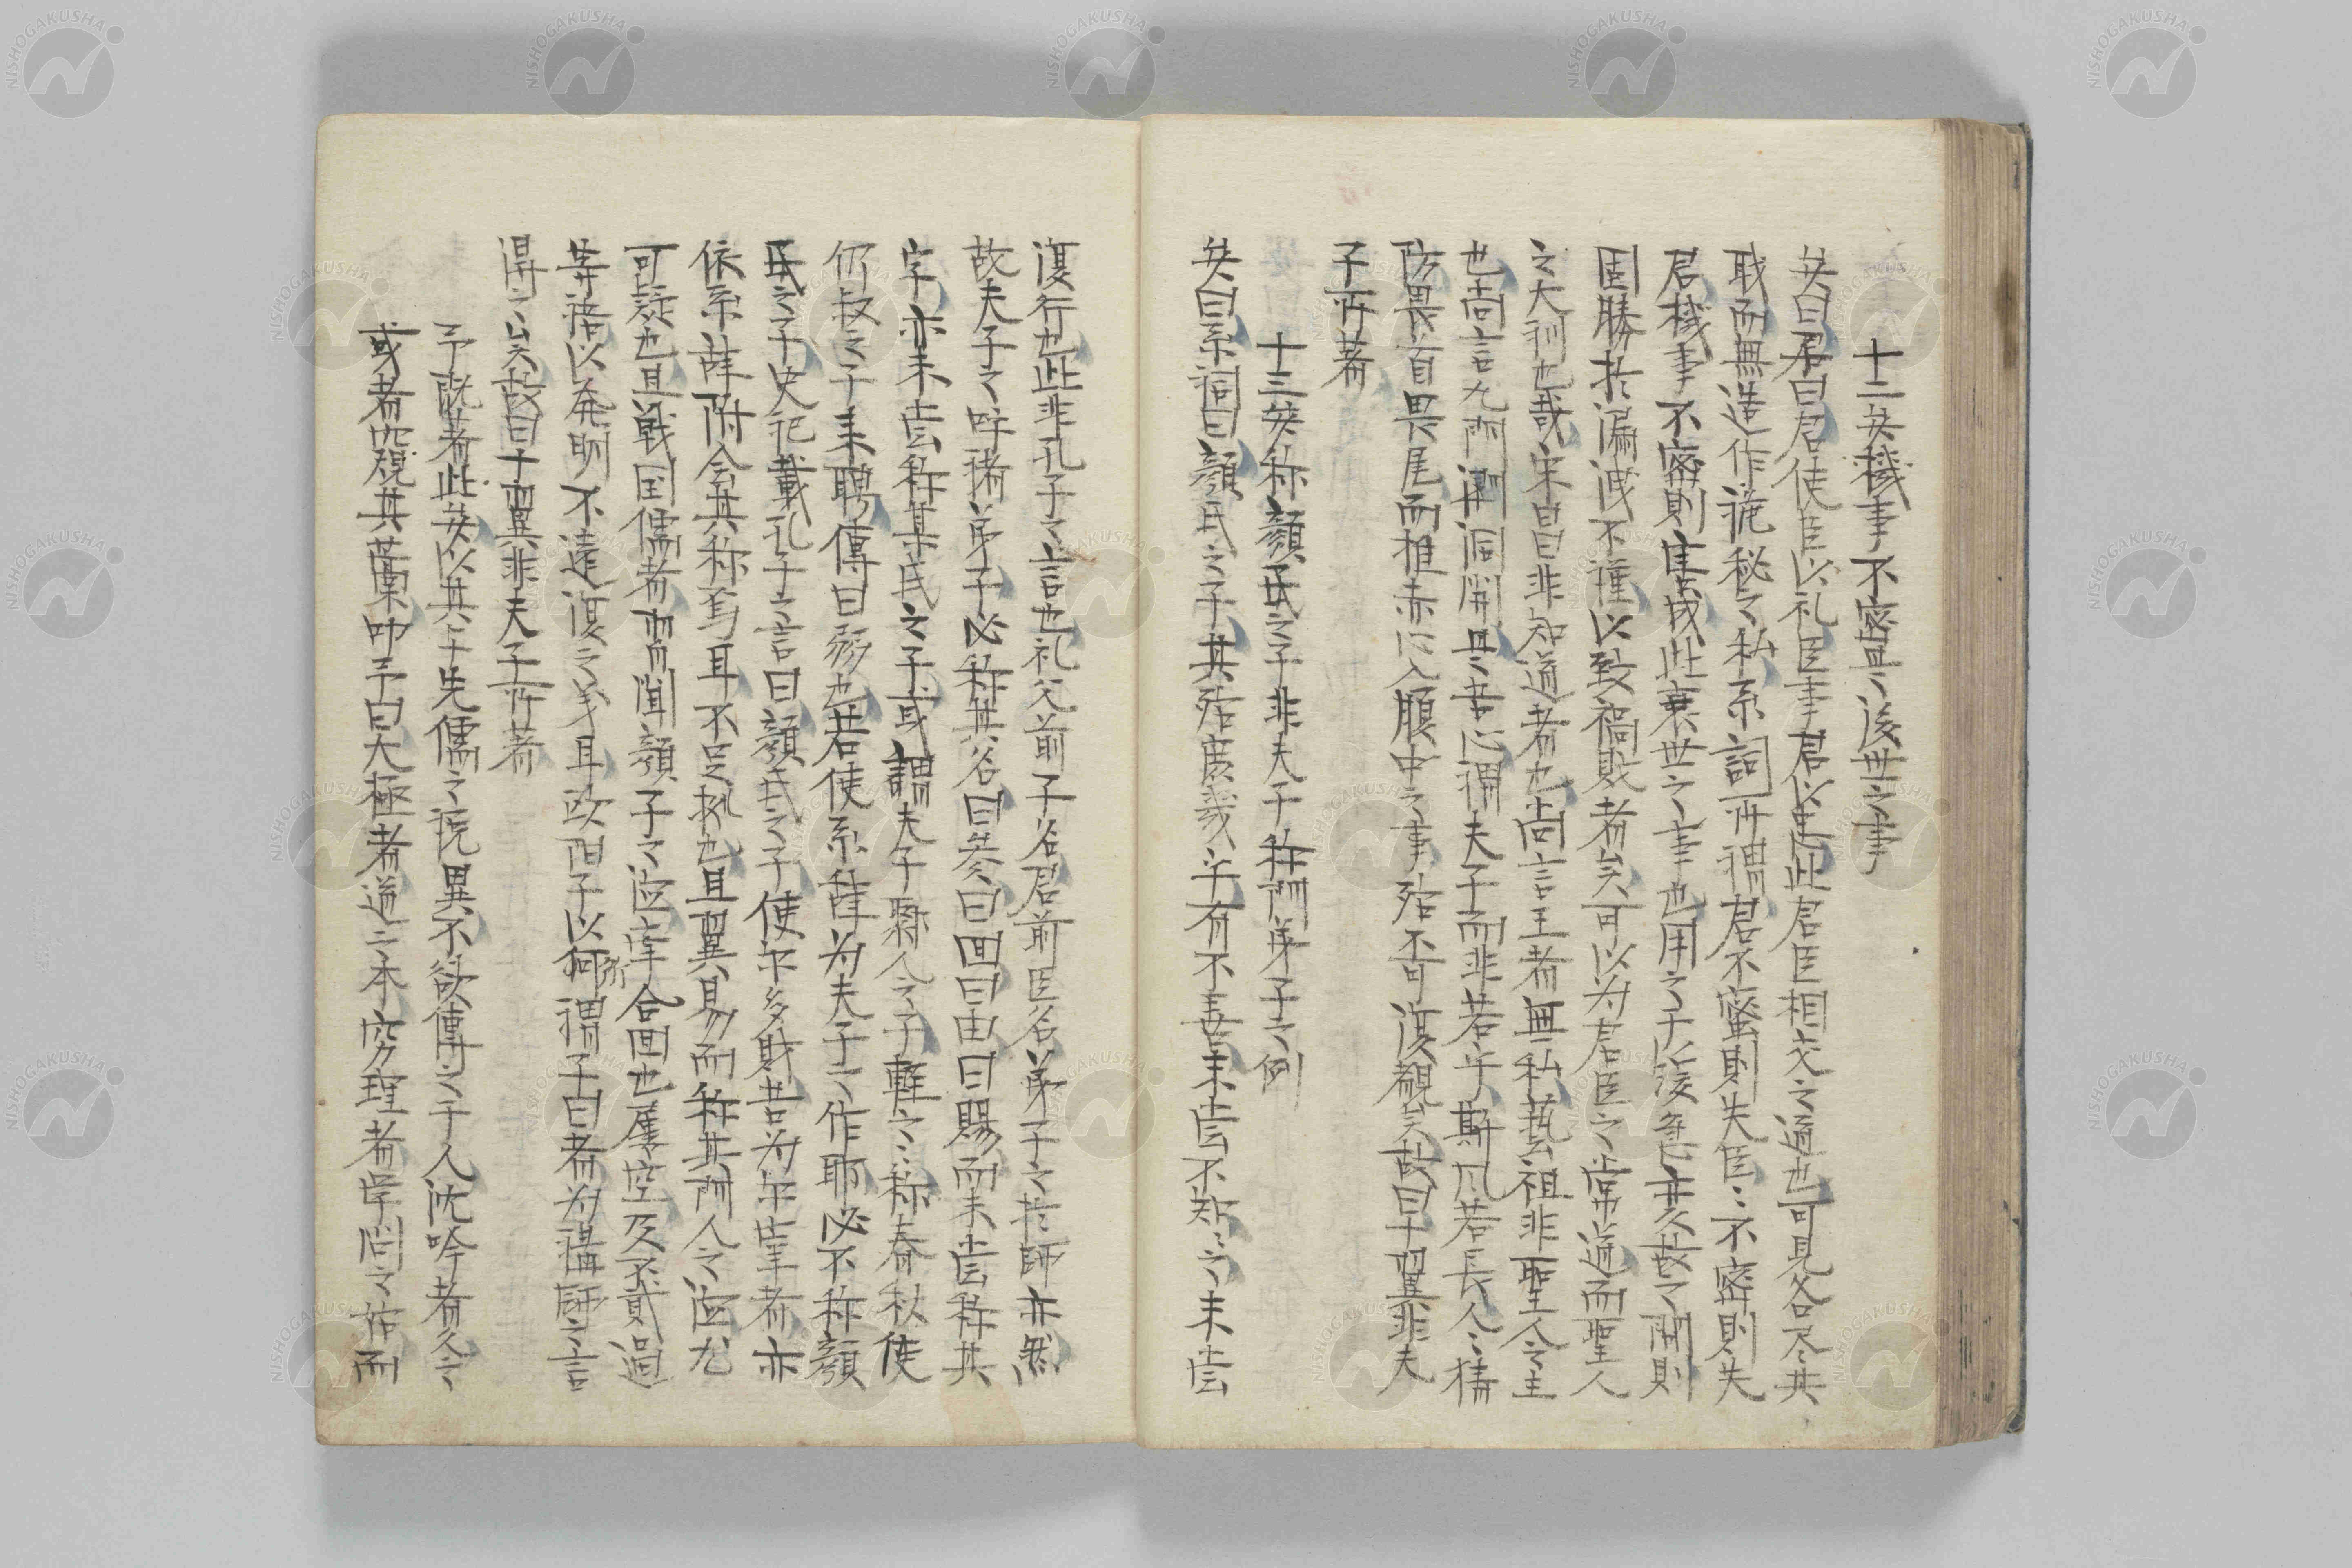 十二矣機事不密是〻後世之事
矣曰君曰君使臣以礼臣事君以忠此君臣相交之道也可見各尽其
職而無造作詭秘之私系詞所謂君不密則失臣〻不密則失
君機事不密則害成此衰世之事也用之于後急亦久故之開則
固勝於漏洩不謹以致禍敗者矣可以为君臣之常道而聖人
之大訓也哉宋曰非知道者也尚言王者無私藝祖非聖人之主
也尚言九門洞開是〻吾心謂夫子而非若乎斯凡若長人〻猜
防畏首畏尾而推赤心入腹中之事殆不可復覩矣故曰十翼非夫
子所著
十三矣称顔氏之子非夫子称門弟子之例
矣曰系詞曰顔氏之子其殆庶幾乎有不善未嘗不知〻之未嘗
復行也此非孔子之言也礼父前子名君前臣名弟子之於師亦然
故夫子之呼諸弟子必称其名曰參曰回曰由曰賜而未嘗称其
字亦未嘗称某氏之子或謂夫子鄹人之子軽之〻称春秋使
仍叔之子来聘傳曰弱也若使系辞为夫子之作耶必不称顔
氏之子史記載孔子之言曰顔氏之子使尓多財吾为尓宰者亦
依系辞附会其称焉耳不足拠也且翼易而称其門人之德尤
可疑也且戦国儒者習聞顔子之德幸合回也屡空及不貳過
等語以発明不遠復之義耳欧阳子以何謂子曰者为講師之言
得之矣故曰十翼非夫子所著
予既著此矣以其与先儒之説異不欲傳之于人沈吟者久之
或者窃覘其藁叩予曰大極者道之本窮理者学問之始而